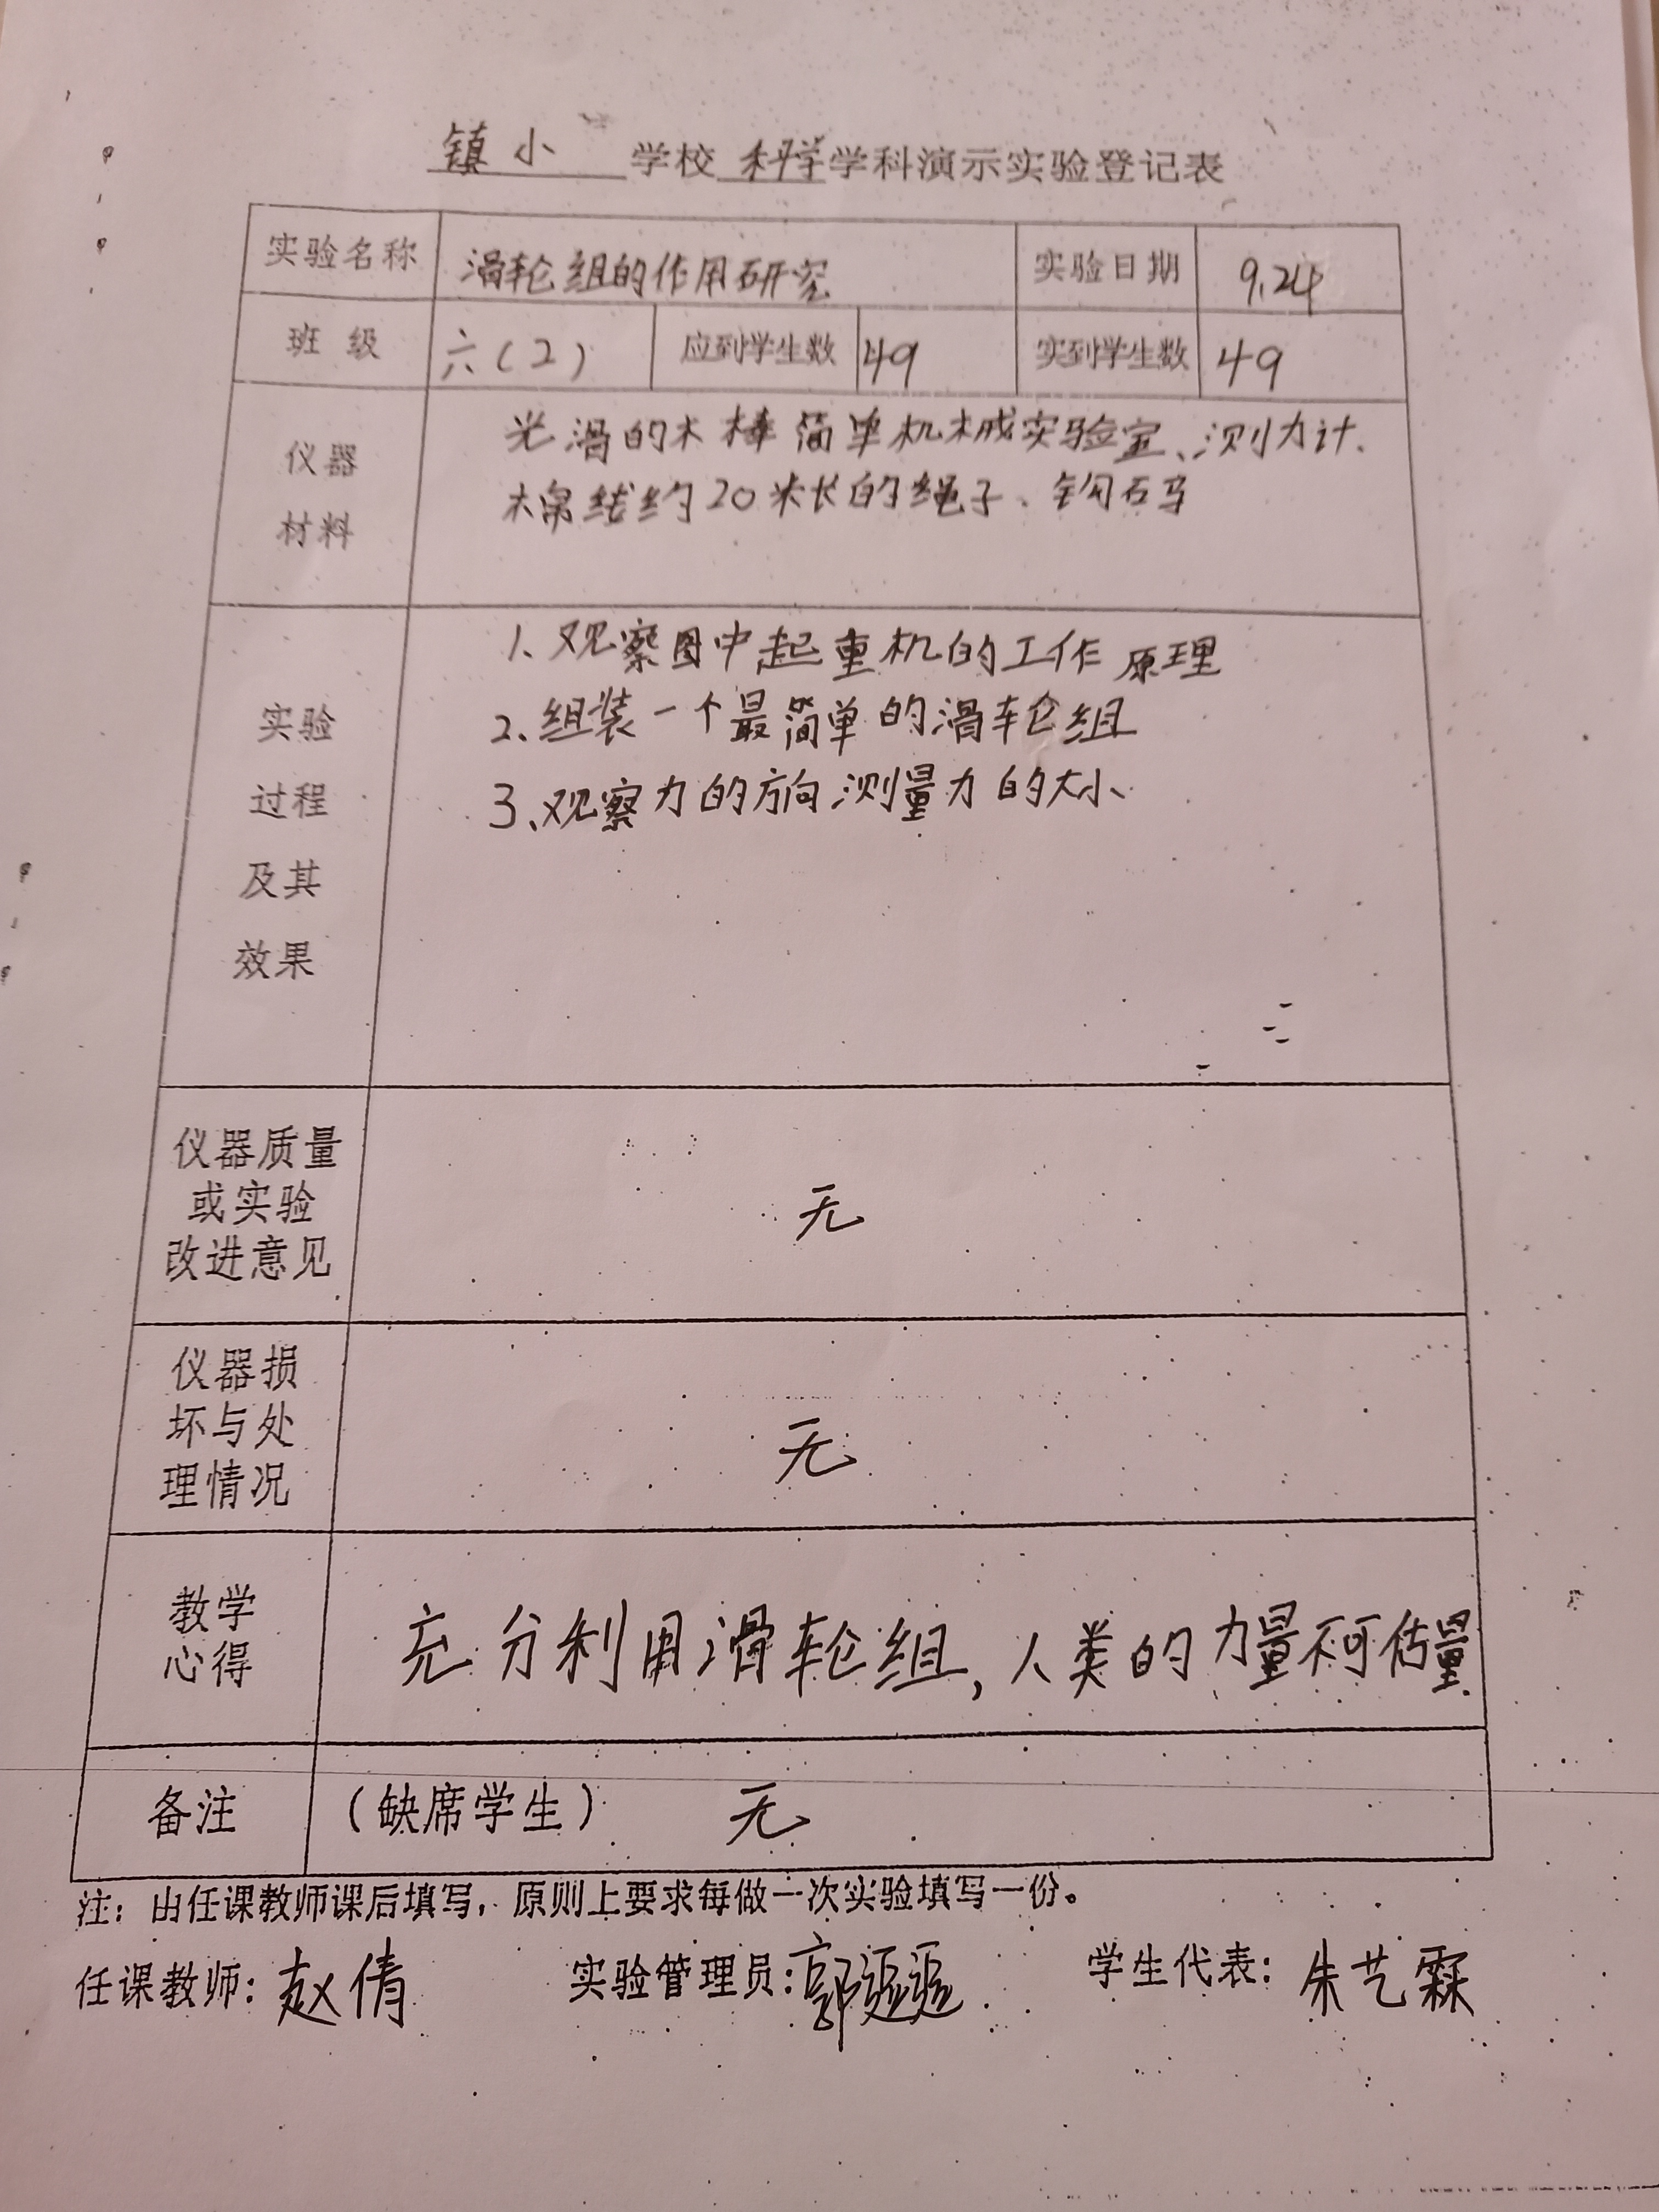 镇小 学校 科学 学科演示实验登记表
实验名称 滑轮组的作用研究 实验日期 9.24
班 级 六(2) 应到学生数 49 实到学生数 49
仪器
材料
光滑的木棒 简单机械实验盒、测力计.
棉线约20米长的绳子、钩码
实验
过程
及其
效果
1、观察图中起重机的工作原理
2、组装一个最简单的滑轮组
3、观察力的方向测量力的大小、
仪器质量
或实验
改进意见
无
仪器损
坏与处
理情况
无
教学
心得
充分利用滑轮组,人类的力量不可估量.
备注 (缺席学生) 无
注:由任课教师课后填写,原则上要求每做一次实验填写一份。
任课教师:赵倩 实验管理员:郭 学生代表:朱艺霖